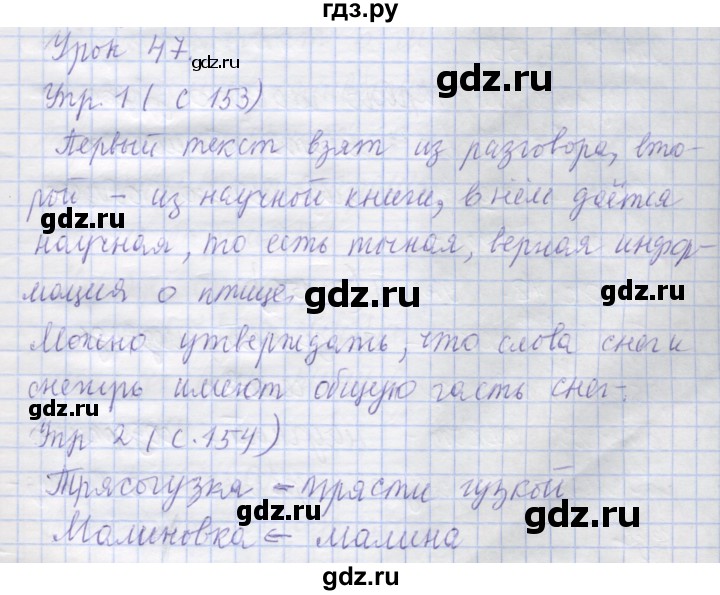 гдз.ру
Урок 47
gdz.ru
gdz.ru
Упр. 1 (с 153)
Первый текст взят из разговора, вто-
рой - из научной книги, в нём даётся
gdz.ru
научная, то есть точная, верная инфор-
мация о птице.
gdz.ru
gdz.ru
Можно утверждать, что слова снег и
снегирь имеют общую часть снег-.
gdz.ru
gdz.ru
Упр 2 (с.154)
Трясогузка ← трясти гузкой
gdz.ru
gdz.ru
Малиновка ← малина
gdz.ru